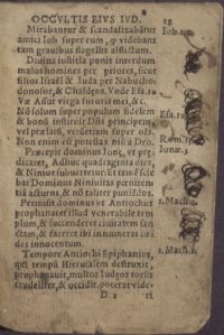 OCCVLTIS EIVS IVD. 18
Mirabantur & scandalizabātur Iob. 1.
amici Iob super eum, q̄ videbant
tam grauibus flagellis afflictum.
Diuina iustitia ponit interdum
malos homines per priores, sicut
filios Israël & Iuda per Nabucho
donosor, & Chaldæos. Vnde Esa. 10.
Væ Assur virga furoris mei, & c. Esa. 10
Nō solum super populum fidelem
& bonū instituit Deus principem,
vel prælatū, verùm etiam super
Non enim est potestas nisi à Deo. Rom. 13.
Præcepit dominus Ionæ, vt præ- Ionæ 3.
dicaret, Adhuc quadraginta dies,
& Niniue subuertetur: Et tamen
bat Dominus Niniuitas pœnitentiam
acturos, & nō taliter puniēdos.
Permisit dominus vt Antiochus 1. Mach. 1.
prophanaret illud venerabile tem
plum, & succenderet ciuitatem san
ctam, & fieret ibi innumera cæ-
des innocentum.
Tempore Antiochi Epiphanis, 2. Mach.
qui templū Hierusalem destruxit,
prophanauit, multos Iudæos torsit
crudeliter, & occidit, poterat vide-
D 2